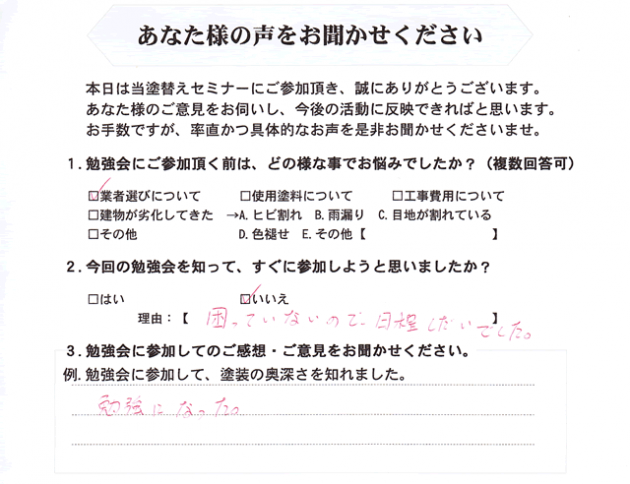 あなた様の声をお聞かせください
本日は当塗替えセミナーにご参加頂き、誠にありがとうございます。
あなた様のご意見をお伺いし、今後の活動に反映できればと思います。
お手数ですが、率直かつ具体的なお声を是非お聞かせくださいませ。
1.勉強会にご参加頂く前は、どの様な事でお悩みでしたか?(複数回答可)
☑業者選びについて □使用塗料について □工事費用について
□建物が劣化してきた →A.ヒビ割れ B.雨漏り C.目地が割れている
□その他 D.色褪せ E.その他【 】
2.今回の勉強会を知って、すぐに参加しようと思いましたか?
□はい ☑いいえ
理由:【 困っていないので、日程しだいでした。 】
3.勉強会に参加してのご感想・ご意見をお聞かせください。
例.勉強会に参加して、塗装の奥深さを知れました。
勉強になった。